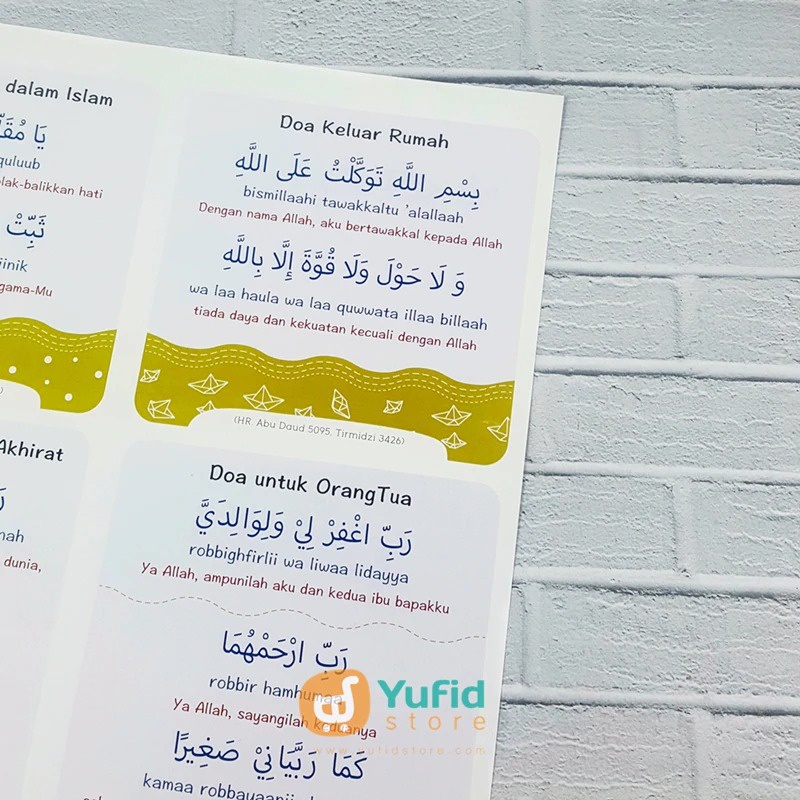 dalam Islam
quluub
lak-balikkan hati
ثَبِّتْ
iinik
gama-Mu
Doa Keluar Rumah
بِسْمِ اللَّهِ تَوَكَّلْتُ عَلَى اللَّهِ
bismillaahi tawakkaltu 'alallaah
Dengan nama Allah, aku bertawakkal kepada Allah
وَ لَا حَوْلَ وَلَا قُوَّةَ إِلَّا بِاللَّهِ
wa laa haula wa laa quwwata illaa billaah
tiada daya dan kekuatan kecuali dengan Allah
(HR. Abu Daud 5095, Tirmidzi 3426)
Akhirat
nah
dunia,
Doa untuk OrangTua
رَبِّ اغْفِرْ لِيْ وَلِوَالِدَيَّ
robbighfirlii wa liwaa lidayya
Ya Allah, ampunilah aku dan kedua ibu bapakku
رَبِّ ارْحَمْهُمَا
robbir hamhumaa
Ya Allah, sayangilah keduanya
كَمَا رَبَّيَانِيْ صَغِيْرًا
kamaa robbayaanii
Yufid
store
www.yufidstore.com